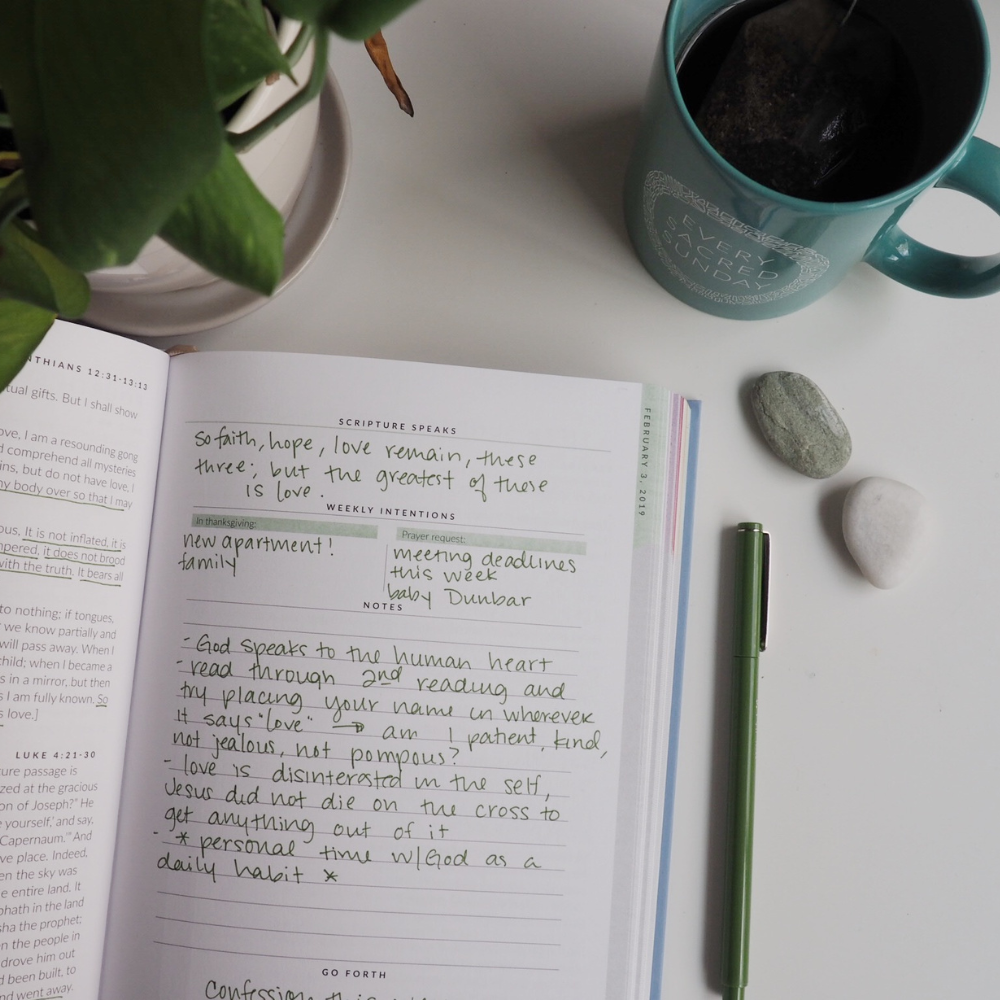 EVERY
SACRED
SUNDAY
THIANS 12:31-13:13
tual gifts. But I shall show
ove, I am a resounding gong
d comprehend all mysteries
ins, but do not have love, I
my body over so that I may
ous, It is not inflated, it is
mpered, it does not brood
with the truth. It bears all
to nothing; if tongues,
we know partially and
will pass away. When I
child; when I became a
s in a mirror, but then
s I am fully known. So
s love.]
LUKE 4:21-30
ture passage is
zed at the gracious
on of Joseph?" He
e yourself,' and say,
Capernaum.'" And
ve place. Indeed,
en the sky was
e entire land. It
phath in the land
sha the prophet;
n the people in
drove him out
d been built, to
nd went away.
SCRIPTURE SPEAKS
So faith, hope, love remain, these
three; but the greatest of these
is love.
WEEKLY INTENTIONS
In thanksgiving:
new apartment!
family
Prayer request:
meeting deadlines
this week
baby Dunbar
NOTES
- God speaks to the human heart
- read through 2nd reading and
try placing your name in wherever
it says "love" → am I patient, kind,
not jealous, not pompous?
- love is disinterested in the self,
Jesus did not die on the cross to
get anything out of it
- * personal time w/God as a
daily habit *
GO FORTH
Confession this
FEBRUARY 3, 2019